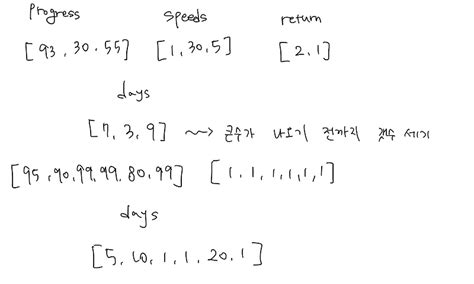 Progress speeds return
[93, 30, 55] [1, 30, 5] [2, 1]
days
[7, 3, 9] ~~> 큰수가 나오기 전까지 갯수 세기
[95, 90, 99, 99, 80, 99] [1, 1, 1, 1, 1, 1]
days
[5, 10, 1, 1, 20, 1]